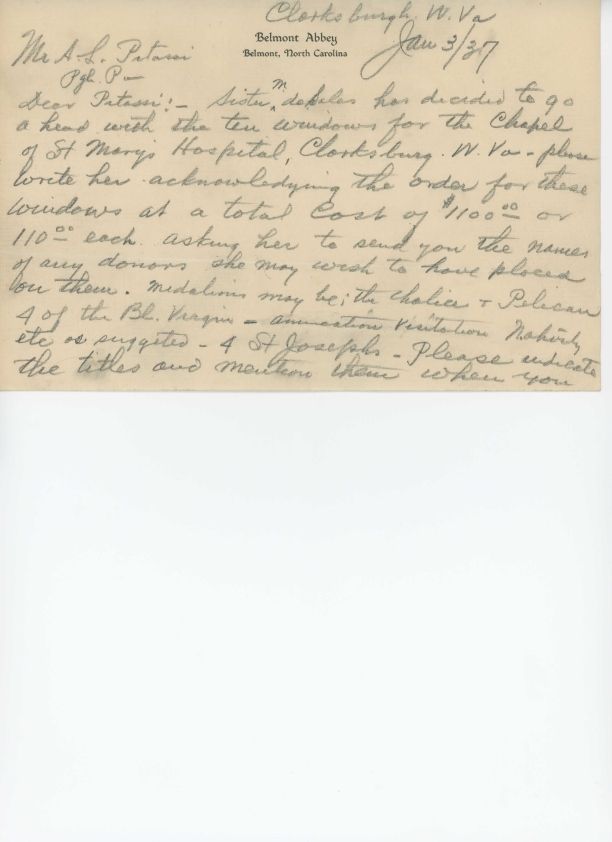 Clarksburgh, W. Va
Belmont Abbey
Belmont, North Carolina
Jan 3/37
Mr A. L. Pitassi
Pgh. Pa
Dear Pitassi:- Sister M. deSales has decided to go
a head with the ten windows for the Chapel
of St Marys Hospital, Clarksburg. W. Va - please
write her acknowledging the order for these
windows at a total cost of $1100.00 or
110.00 each. asking her to send you the names
of any donors she may wish to have placed
on them. Medalions may be; the Chalice + Pelican
4 of the Bl. Virgin - annunciation Visitation Nativity
etc as suggested - 4 St Josephs - Please indicate
the titles and mention them when you